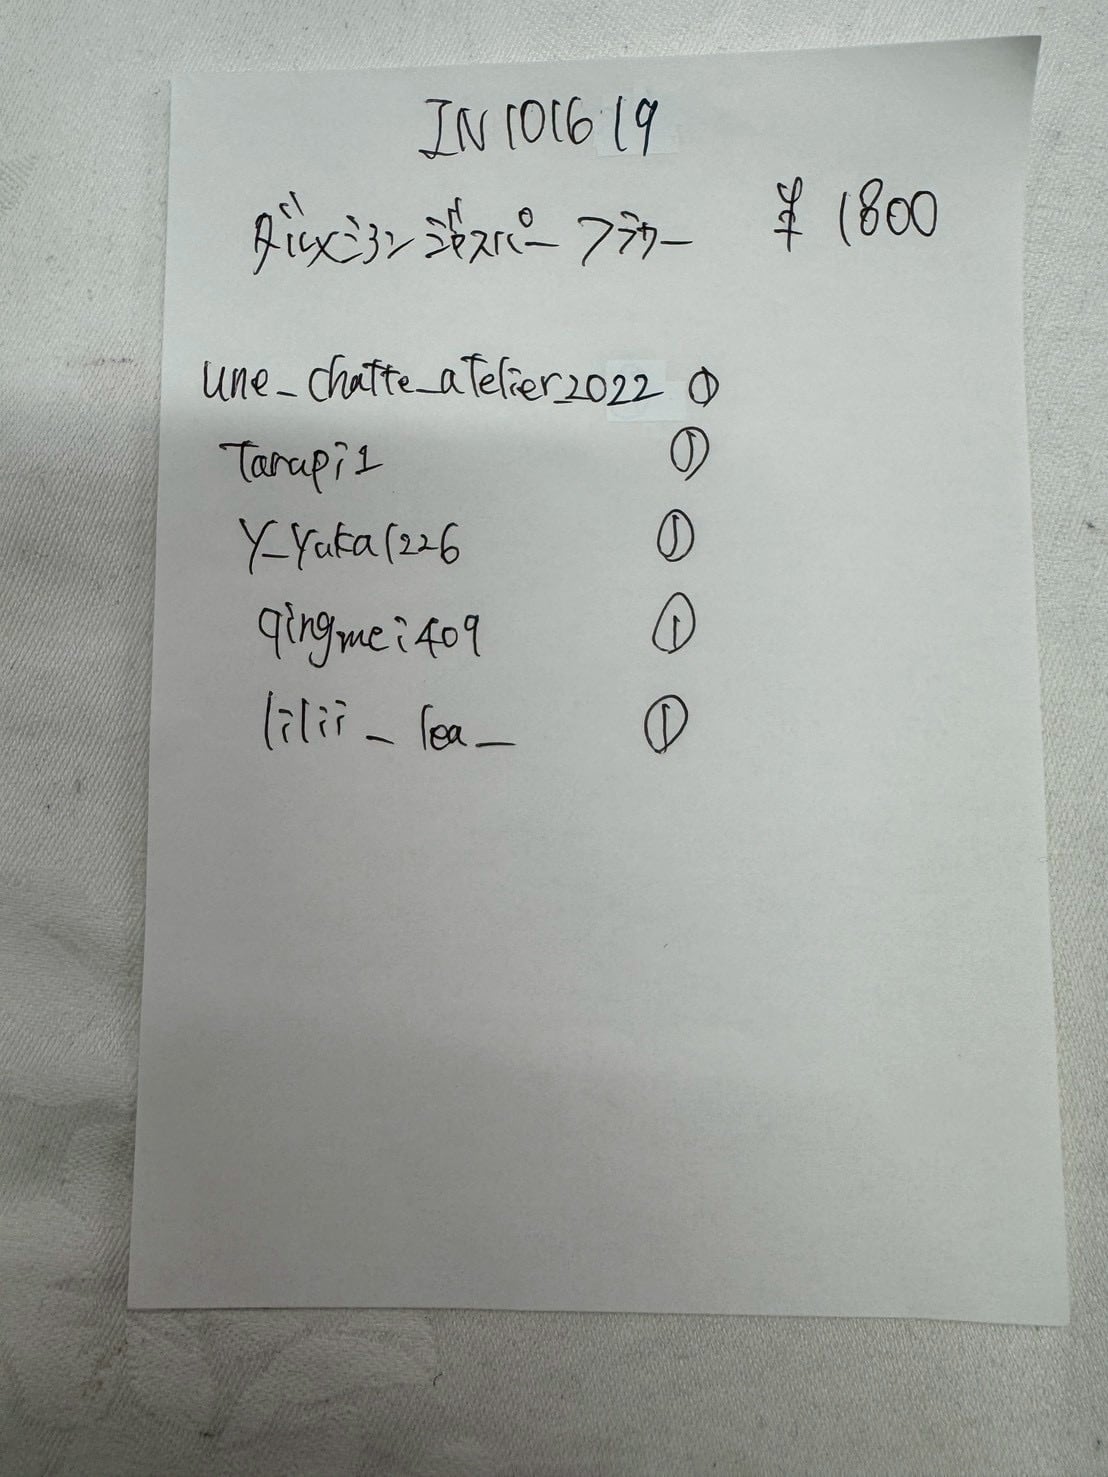 IN101619
ダルメシアンジャスパー フラワー ¥1800
une_chatte_atelier2022 ①
Tarapi1 ①
Y_Yuka1226 ①
qingmei409 ①
lilii_lea_ ①